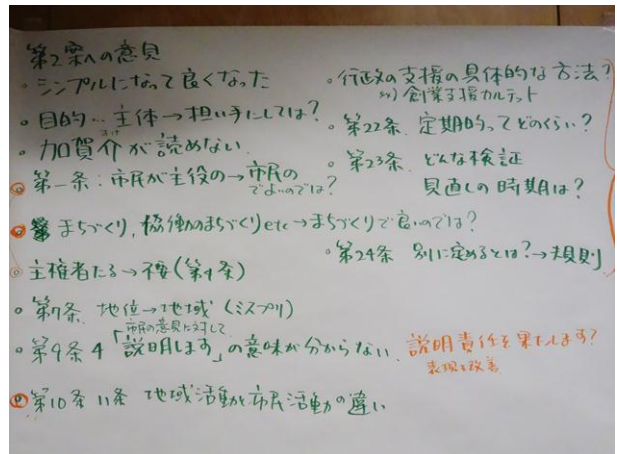 第2案への意見
・シンプルになって良くなった
・目的‥主体→担い手にしては?
・加賀介が読めない
すけ
・第一条:市民が主役の→市民の
でよいのでは?
・まちづくり,協働のまちづくりetc→まちづくりで良いのでは?
○主権者たる→不要(第4条)
・第7条 地位→地域(ミスプリ)
市民の意見に対して
・第9条4「説明します」の意味が分からない.
説明責任を果たします?
表現を改善
・第10条 11条 地域活動と市民活動の違い
・行政の支援の具体的な方法?
ex)創業支援カルテット
・第22条 定期的ってどのくらい?
・第23条 どんな検証
見直しの時期は?
・第24条 別に定めるとは?→規則